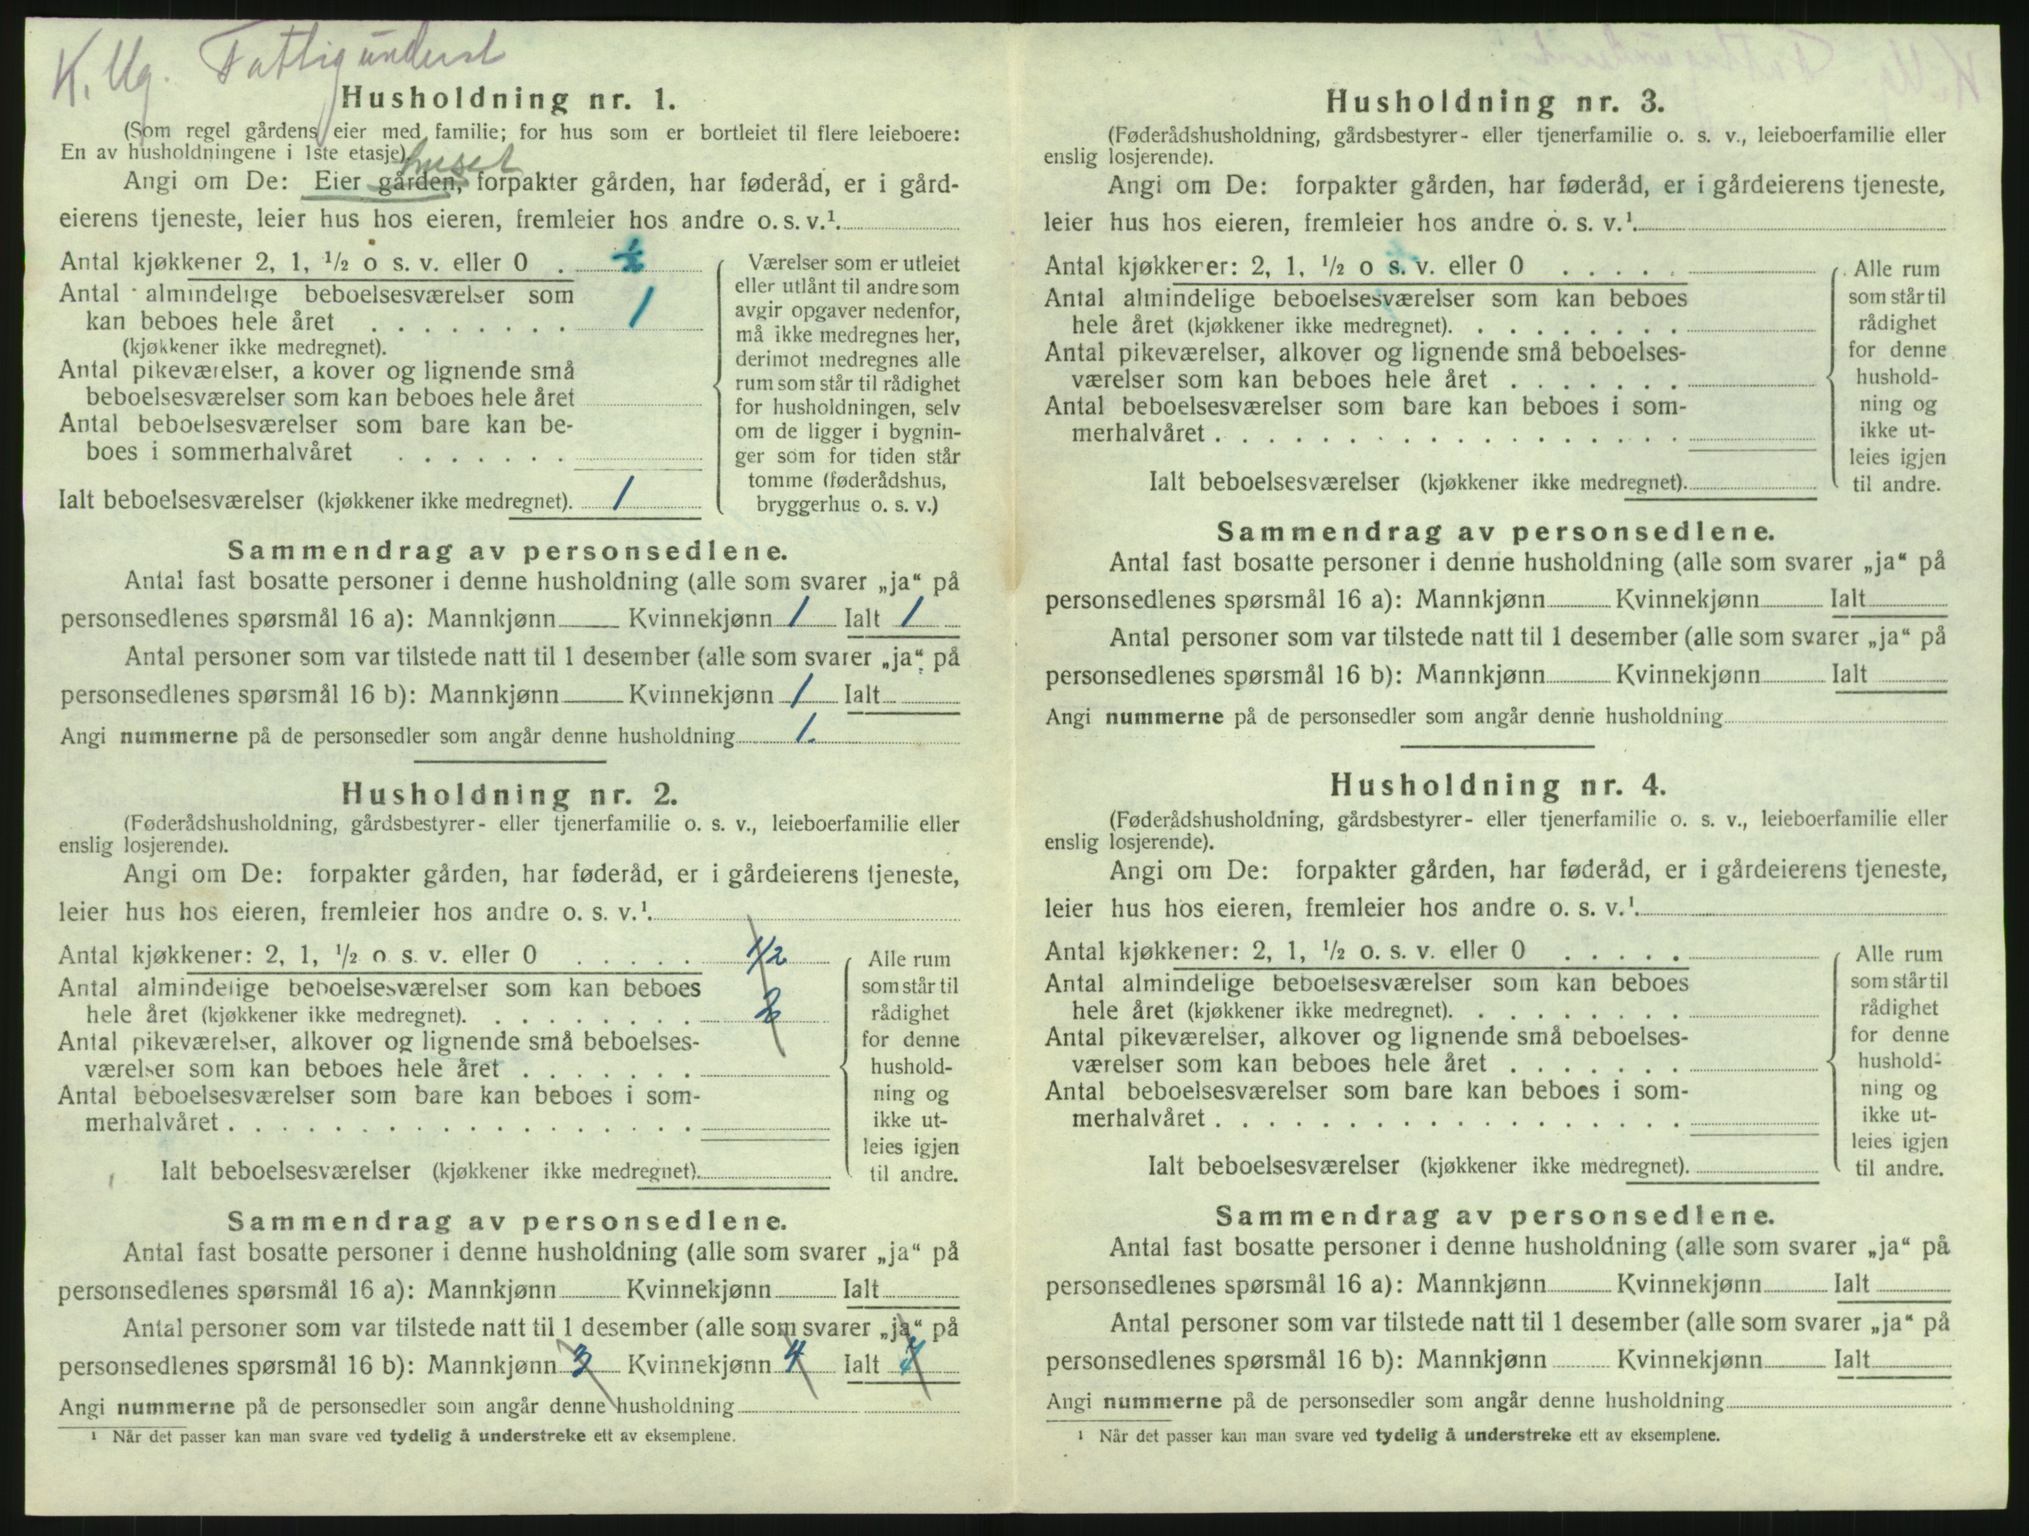 K. Ug. Fattigunderst
Husholdning nr. 1.
(Som regel gårdens eier med familie; for hus som er bortleiet til flere leieboere:
En av husholdningene i 1ste etasje).
huset
Angi om De: Eier gården, forpakter gården, har føderåd, er i gård-
eierens tjeneste, leier hus hos eieren, fremleier hos andre o. s. v.¹
Antal kjøkkener 2, 1, ½ o s. v. eller 0 . ½
Antal almindelige beboelsesværelser som
kan beboes hele året . . . . . . . . 1
(kjøkkener ikke medregnet).
Antal pikeværelser, a kover og lignende små
beboelsesværelser som kan beboes hele året
Antal beboelsesværelser som bare kan be-
boes i sommerhalvåret . . . . . . .
Ialt beboelsesværelser (kjøkkener ikke medregnet). 1
Værelser som er utleiet
eller utlånt til andre som
avgir opgaver nedenfor,
må ikke medregnes her,
derimot medregnes alle
rum som står til rådighet
for husholdningen, selv
om de ligger i bygnin-
ger som for tiden står
tomme (føderådshus,
bryggerhus o. s. v.)
Sammendrag av personsedlene.
Antal fast bosatte personer i denne husholdning (alle som svarer „ja“ på
personsedlenes spørsmål 16 a): Mannkjønn Kvinnekjønn 1 Ialt 1
Antal personer som var tilstede natt til 1 desember (alle som svarer „ja“ på
personsedlenes spørsmål 16 b): Mannkjønn Kvinnekjønn 1 Ialt
Angi nummerne på de personsedler som angår denne husholdning 1.
Husholdning nr. 2.
(Føderådshusholdning, gårdsbestyrer- eller tjenerfamilie o. s. v., leieboerfamilie eller
enslig losjerende).
Angi om De: forpakter gården, har føderåd, er i gårdeierens tjeneste,
leier hus hos eieren, fremleier hos andre o. s. v.¹
Antal kjøkkener: 2, 1, ½ o. s. v. eller 0 . . . . . 1/2
Antal almindelige beboelsesværelser som kan beboes
hele året (kjøkkener ikke medregnet). . . . . . . . . 2
Antal pikeværelser, alkover og lignende små beboelses-
værelser som kan beboes hele året . . . . . . .
Antal beboelsesværelser som bare kan beboes i som-
merhalvåret . . . . . . . . . . . . . . . . . .
Ialt beboelsesværelser (kjøkkener ikke medregnet).
Alle rum
som står til
rådighet
for denne
hushold-
ning og
ikke ut-
leies igjen
til andre.
Sammendrag av personsedlene.
Antal fast bosatte personer i denne husholdning (alle som svarer „ja“ på
personsedlenes spørsmål 16 a): Mannkjønn Kvinnekjønn Ialt
Antal personer som var tilstede natt til 1 desember (alle som svarer „ja“ på
personsedlenes spørsmål 16 b): Mannkjønn 3 Kvinnekjønn 4 Ialt 7
Angi nummerne på de personsedler som angår denne husholdning
¹ Når det passer kan man svare ved tydelig å understreke ett av eksemplene.
Husholdning nr. 3.
(Føderådshusholdning, gårdsbestyrer- eller tjenerfamilie o. s. v., leieboerfamilie eller
enslig losjerende).
Angi om De: forpakter gården, har føderåd, er i gårdeierens tjeneste,
leier hus hos eieren, fremleier hos andre o. s. v.¹
Antal kjøkkener: 2, 1, ½ o s. v. eller 0 . . . . .
Antal almindelige beboelsesværelser som kan beboes
hele året (kjøkkener ikke medregnet). . . . . . . . .
Antal pikeværelser, alkover og lignende små beboelses-
værelser som kan beboes hele året . . . . . . .
Antal beboelsesværelser som bare kan beboes i som-
merhalvåret . . . . . . . . . . . . . . . . . .
Ialt beboelsesværelser (kjøkkener ikke medregnet).
Alle rum
som står til
rådighet
for denne
hushold-
ning og
ikke ut-
leies igjen
til andre.
Sammendrag av personsedlene.
Antal fast bosatte personer i denne husholdning (alle som svarer „ja“ på
personsedlenes spørsmål 16 a): Mannkjønn Kvinnekjønn Ialt
Antal personer som var tilstede natt til 1 desember (alle som svarer „ja“ på
personsedlenes spørsmål 16 b): Mannkjønn Kvinnekjønn Ialt
Angi nummerne på de personsedler som angår denne husholdning
Husholdning nr. 4.
(Føderådshusholdning, gårdsbestyrer- eller tjenerfamilie o. s. v., leieboerfamilie eller
enslig losjerende).
Angi om De: forpakter gården, har føderåd, er i gårdeierens tjeneste,
leier hus hos eieren, fremleier hos andre o. s. v.¹
Antal kjøkkener: 2, 1, ½ o. s. v. eller 0 . . . . .
Antal almindelige beboelsesværelser som kan beboes
hele året (kjøkkener ikke medregnet). . . . . . . . .
Antal pikeværelser, alkover og lignende små beboelses-
værelser som kan beboes hele året . . . . . . .
Antal beboelsesværelser som bare kan beboes i som-
merhalvåret . . . . . . . . . . . . . . . . . .
Ialt beboelsesværelser (kjøkkener ikke medregnet).
Alle rum
som står til
rådighet
for denne
hushold-
ning og
ikke ut-
leies igjen
til andre.
Sammendrag av personsedlene.
Antal fast bosatte personer i denne husholdning (alle som svarer „ja“ på
personsedlenes spørsmål 16 a): Mannkjønn Kvinnekjønn Ialt
Antal personer som var tilstede natt til 1 desember (alle som svarer „ja“ på
personsedlenes spørsmål 16 b): Mannkjønn Kvinnekjønn Ialt
Angi nummerne på de personsedler som angår denne husholdning
¹ Når det passer kan man svare ved tydelig å understreke ett av eksemplene.